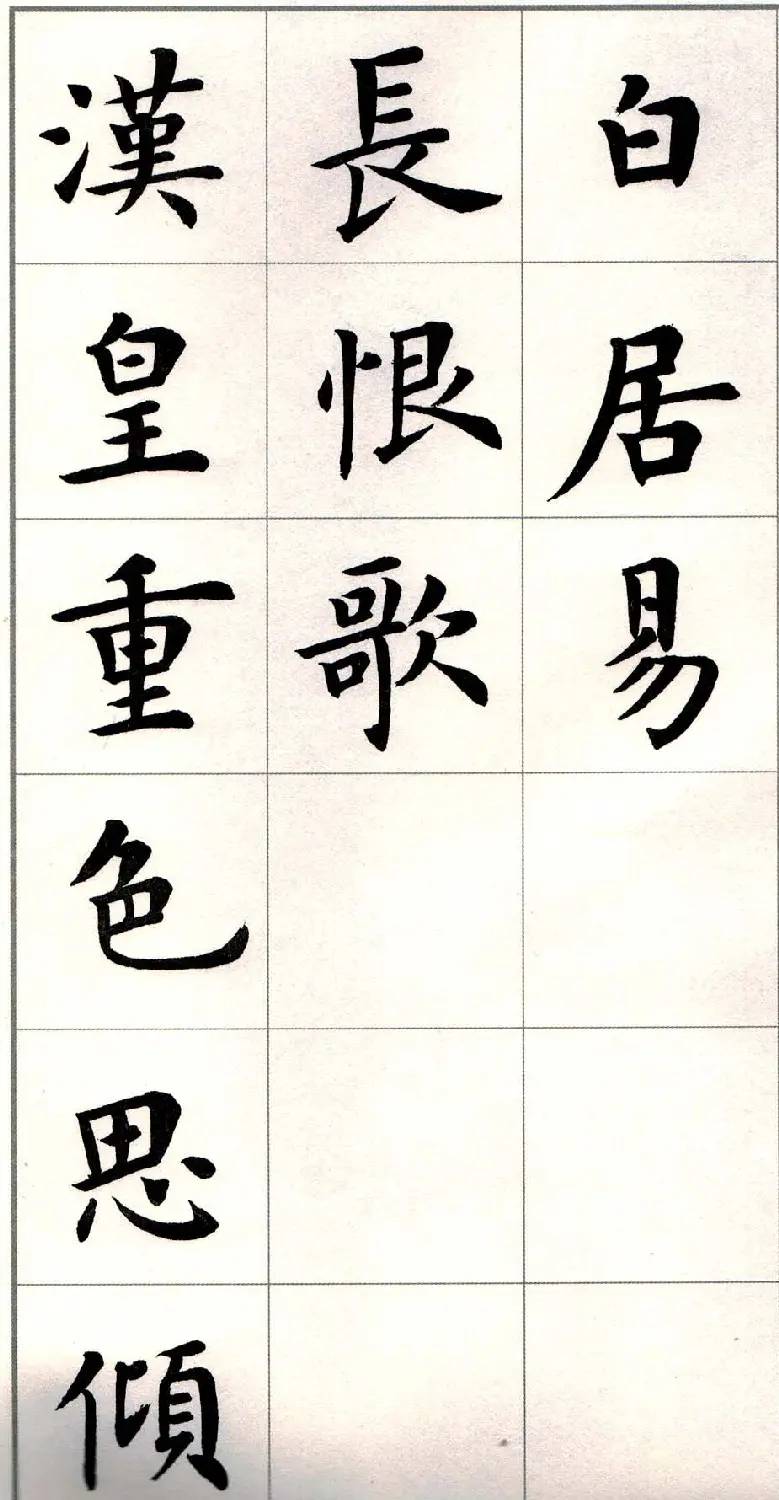 白居易
長恨歌
漢皇重色思傾